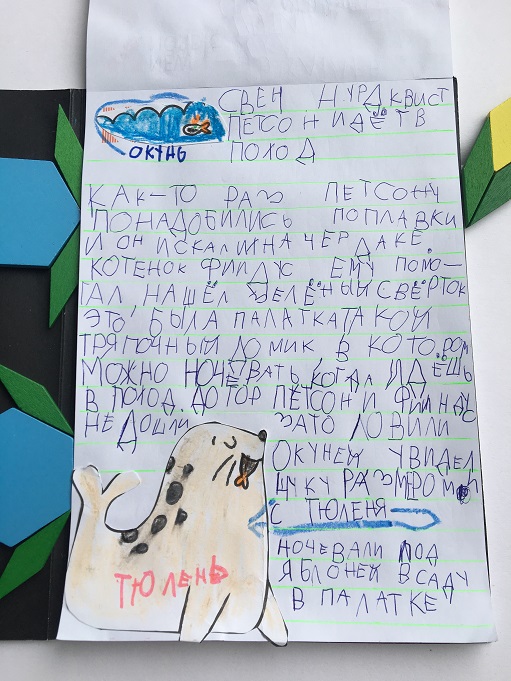 СВЕН НУРДКВИСТ
ПЕТСОН ИДЁТ В
ПОХОД
ОКУНЬ
КАК-ТО РАЗ ПЕТСОНУ
ПОНАДОБИЛИСЬ ПОПЛАВКИ
И ОН ИСКАЛ ИХ НА ЧЕРДАКЕ.
КОТЕНОК ФИНДУС ЕМУ ПОМО-
ГАЛ НАШЁЛ ЗЕЛЁНЫЙ СВЁРТОК
ЭТО БЫЛА ПАЛАТКА ТАКОЙ
ТРЯПОЧНЫЙ ДОМИК В КОТОРОМ
МОЖНО НОЧЕВАТЬ, КОГДА ИДЁШЬ
В ПОХОД. ДО ГОР ПЕТСОН И ФИНДУС
НЕ ДОШЛИ ЗАТО ЛОВИЛИ
ОКУНЕЙ УВИДЕЛ
ЩУКУ РАЗМЕРОМ
С ТЮЛЕНЯ
НОЧЕВАЛИ ПОД
ЯБЛОНЕЙ В САДУ
В ПАЛАТКЕ
ТЮЛЕНЬ